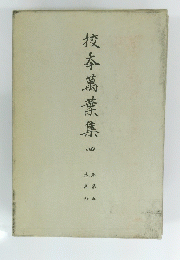 校本萬葉集 四